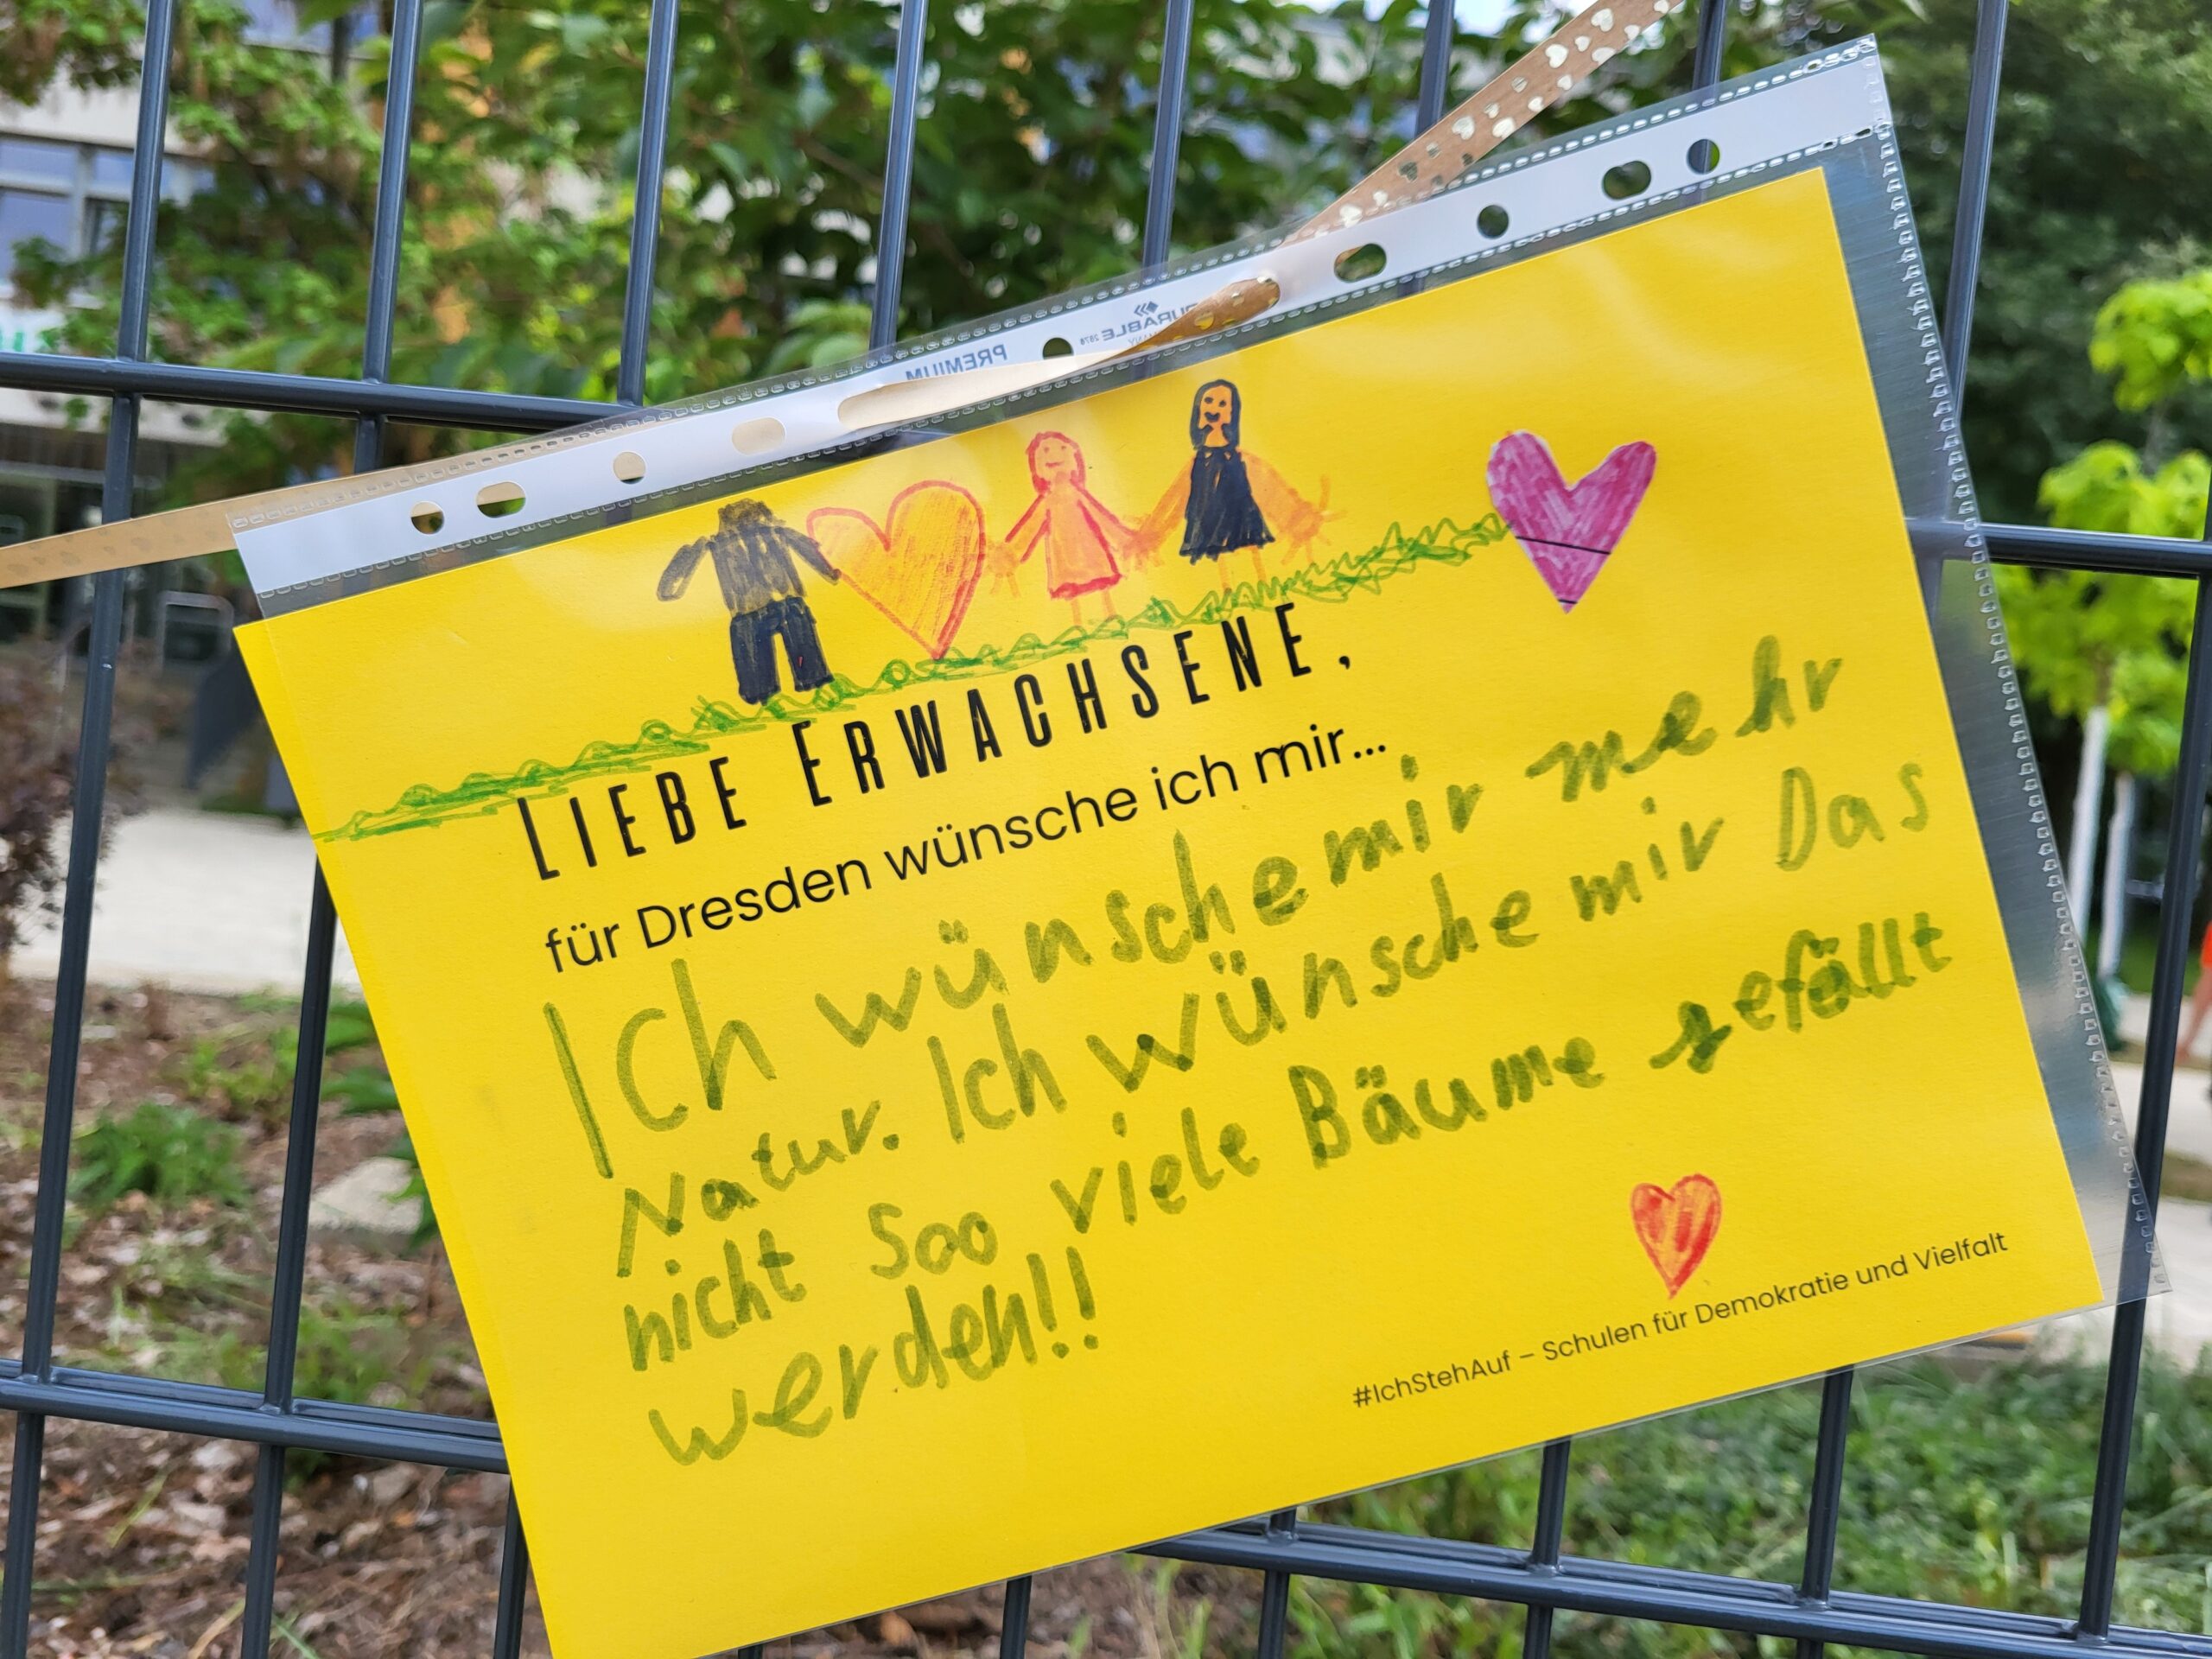 PREMIUM
DURABLE
LIEBE ERWACHSENE,
für Dresden wünsche ich mir...
Ich wünsche mir mehr
Natur. Ich wünsche mir Das
nicht Soo viele Bäume gefällt
werden!!
#IchStehAuf – Schulen für Demokratie und Vielfalt